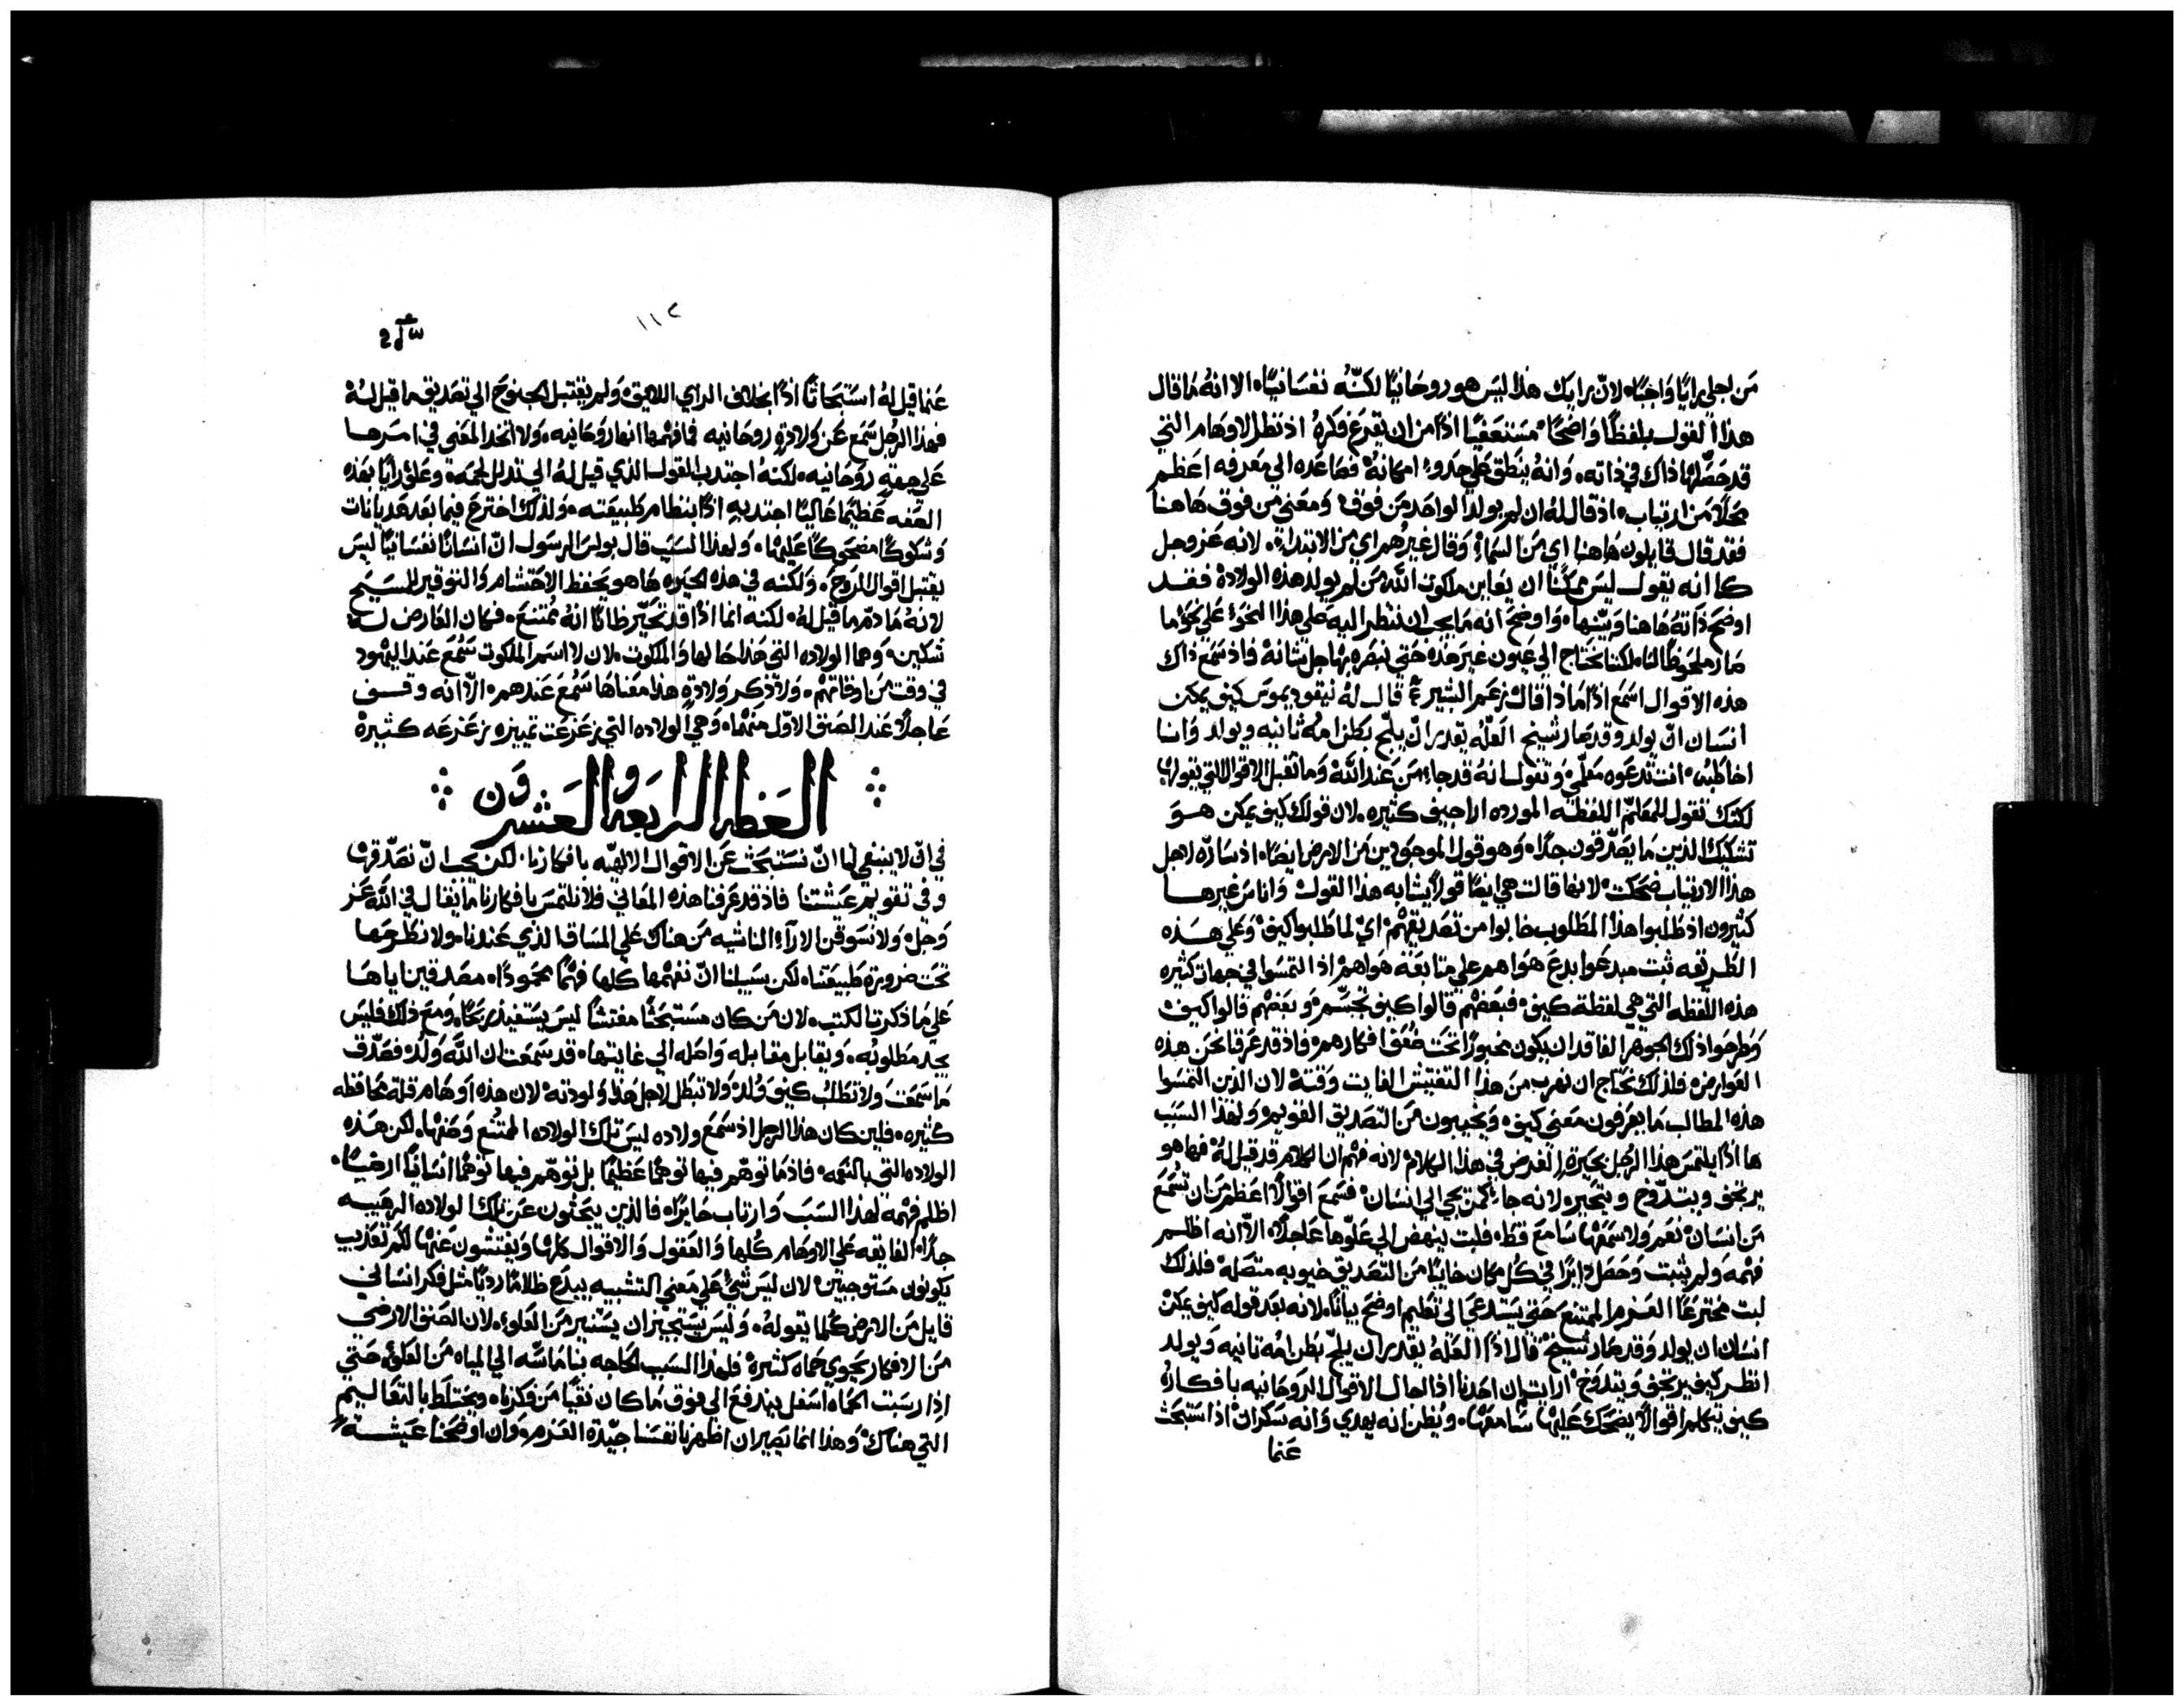 من اجلي رايًا واجبًا. لان رايك هذا ليس هو روحانيًا لكنّه نفسانيًا. الا انه ما قال
هذا القول بلفظًا واضحًا مستعفيًا اذًا من ان يقرع فكره اذ نظر الاوهام التي
قد حصّلها ذاك في ذاته. وانه ينطق علي حدود امكانه فصاعده الي معرفه اعظم
محلًا من ارتياب. اذ قال له ان لم يولد الواحد من فوق ومعني من فوق هاهنا
فقد قال قايلون هاهنا اي من السماء وقال غيرهم اي من الابتداء. لانه عز وجل
كانه يقول ليس ممكنًا ان يعاين ملكوت الله من لم يولد هذه الولادة فقد
اوضح ذاته هاهنا وبيّنها. واوضح انه ما يجب ان ننظر اليه علي هذا النحو علي نحو ما
صار ملحوظًا لنا لكننا نحتاج الي عيون غير هذه حتي نبصره بها جل شانه فاذ سمع ذاك
هذه الاقوال اسمع اذًا ماذا قال زعم البشير قال له نيقوديموس كيف يمكن
انسان ان يولد وقد صار شيخ العلّه يقدر ان يلج بطن امه ثانيه ويولد وانا
اخاطبه انت تدعوه معلّمي وتقول انه قد جاء من عند الله وما تقبل الاقوال التي يقولها
لكنك تقول للمعلّم اللفظه المورده اراجيف كثيره. لان قولك كيف يمكن هو
تشكيك الذين ما يصدّقون جدًا. وهو قول الموجودين من الارض ايضًا. اذ ساره لاجل
هذا الارتياب ضحكت لانها قالت هي ايضًا قولًا يشابه هذا القول واناس غيرها
كثيرون اذ طلبوا هذا المطلوب خابوا من تصديقهم اي لما طلبوا كيف وعلي هذه
الطريقه ثبت مبدعوا بدع هواهم علي متابعة هواهم اذ التمسوا في جهات كثيره
هذه اللفظه التي هي لفظة كيف. فبعضهم قالوا كيف تجسّم. وبعضهم قالوا كيف
وطرحوا ذلك الجوهر الفاقد ان يكون محبورًا تحت ضعف افكارهم. فاذ قد عرفنا نحن هذه
العوارض. فلذلك نحتاج ان نهرب من هذا التفتيش الفايت وقته لان الذين التمسوا
هذه المطالب ما يعرفون معني كيف. ويخيبون من التصديق القويم ولهذا السبب
ها اذًا يلتمس هذا الرجل بحيرة الغرض في هذا الكلام لانه فهم ان الكلام قد قيل له فها هو
يرتجف ويتدوّخ ويتحير لانه جاء كمن يجي الي انسان فسمع اقوالًا اعظم من ان تسمع
من انسان نعم ولا سمعها سامع قط. فلبث ينهض الي علوّها عاجلًا. الا انه اظلم
فهمه ولم يثبت وحصل دايرًا في كل مكان خايبًا من التصديق خيوبه متصله فلذلك
لبث مخترعًا العزم الممتنع حتي يستدعي الي تعليم اوضح بيانًا. لانه بعد قوله كيف يمكن
انسان ان يولد وقد صار شيخ قال اذًا العلّه يقدر ان يلج بطن امه ثانيه ويولد
انظر كيف يرتجف ويتدوّخ ارايت ان احدنا اذا احال الاقوال الروحانيه بافكاره
كيف يتكلم اقوالًا يضحك عليها سامعها. ويظن انه يهدي وانه سكران اذا استبحث
عنما
١١٢
عنما قيل له استبحاثًا اذًا بخلاف الراي اللايق. ولم يقتبل الجنوح الي تصديق ما قيل له
فهذا الرجل سمع عن ولادة روحانيه فما فهمها انها روحانيه. ولا اتخذ المعني في امرها
علي جهة روحانيه. لكنه اجتذب القول الذي قيل له الي تذلل لحمه. وعلق رايًا بهذه
الصفه عظيمًا عاليًا اجتذبه اذًا بنظام طبيعته. ولذلك اخترع فيما بعد هذيانات
وشكوكًا مضحوكًا عليها. ولهذا السبب قال بولس الرسول انّ انسانًا نفسانيًا ليس
يقتبل اقوال الروح. ولكنه في هذه الحيره ها هو يحفظ الاحتشام والتوقير للمسيح
لانه ما ذمّ ما قيل له. لكنه انما اذًا قد تحيّر ظانًا انه ممتنع. فكان العارض له
شكين. وهما الولاده التي هذا حالها والملكوت. لان لا اسم الملكوت سُمع عند اليهود
في وقت من اوقاتهم. ولا ذكر ولادة هذا معناها سُمع عندهم. الّا انه وقف
عاجلًا عند الصنف الاوّل منهما. وهي الولاده التي زعزعت تمييزه زعزعه كثيرة
العظه الرابعه والعشرون
في انّ لا ينبغي لنا انّ نستبحث عن الاقوال الالهيّه بافكارنا. لكن يجب انّ نصدّقها
وفي تقويم عيشتنا فاذ قد عرفنا هذه المعاني فلا نلتمس بافكارنا ما يقال في الله عز
وجل ولا نسوقن الآراء الناشيه من هناك علي المساق الذي عندنا. ولا نطرحها
تحت ضرورة طبيعتنا. لكن سبيلنا انّ نفهمها كلها فهمًا محمودًا. مصدقين اياها
علي ما ذكرت الكتب. لان من كان مستبحثًا مفتشًا ليس يستفيد ربحًا. ومع ذلك فليس
يجد مطلوبه. ويقابل مقابله واصله الي غايتها. قد سمعت ان الله وَلَد. فصدّق
ما سمعت ولا تطلب كيف وُلد. ولا تبطل لاجل هذا ولودته. لان هذه اوهام قلة محافظه
كثيره. فلين كان هذا الرجل اذ سمع ولاده ليس تلك الولاده الممتنع وصفها. لكن هذه
الولاده التي بالنعمه. فاذ ما توهّم فيها توهمًا عظيمًا بل توهّم فيها توهمًا انسانيًا ارضيًا.
اظلم فهمه لهذا السبب وارتاب حايرًا. فالذين يبحثون عن تلك الولاده الرهيبه
جدًا. الفايقه علي الاوهام كلها والعقول والاقوال كلها ويفتشون عنها لكم تعذيب
يكونون مستوجبين. لان ليس شيء علي معني التشبيه يبدع ظلامًا رديًا مثل فكر انساني
قايل من الارض كلما يقوله. وليس يستجيز ان يستنير من العلو. لان الصنف الارضي
من الافكار يحوي حماه كثيرة فلهذا السبب الحاجه بنا ماسّه الي المياه من العلو. حتي
اذا رسبت الحماه اسفل يندفع الي فوق ما كان نقيًا من فكرنا. ويختلط بالتعاليم
التي هناك. وهذا انما يصير ان اظهرنا نفسنا جيّدة العزم. وان اوضحنا عيشة